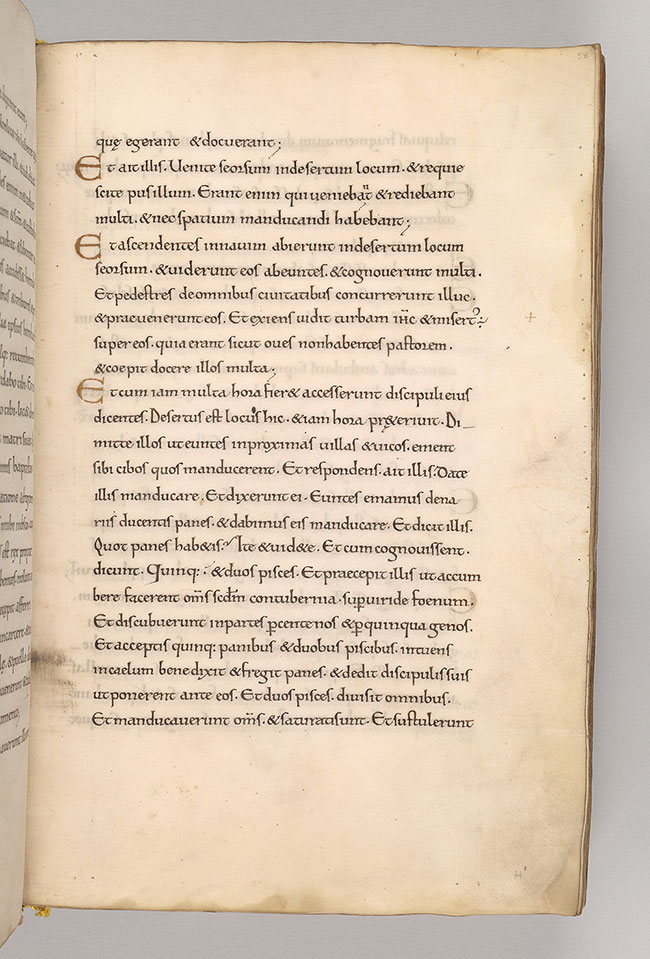 58
quę egerant & docuerant;
Et ait illis. Uenite seorsum indesertum locum. & requie
scite pusillum. Erant enim qui ueniebant & rediebant
multi. & nec spatium manducandi habebant;
Et ascendentes innauim abierunt indesertum locum
seorsum. & uiderunt eos abeuntes. & cognouerunt multi.
Et pedestres deomnibus ciuitatibus concurrerunt illuc.
& praeuenerunt eos. Et exiens uidit turbam ihc & misert;
super eos. quia erant sicut oues nonhabentes pastorem.
& coepit docere illos multa;
Et cum iam multa hora fier& accesserunt discipuli eius
dicentes. Desertus est locus hic. & iam hora pr&eriuit. Di_
mitte illos ut euntes inproximas uillas & uicos. ement
sibi cibos quos manducerent. Et respondens. ait illis. Date
illis manducare. Et dixerunt ei. Euntes emamus dena
riis ducentis panes. & dabimus eis manducare. Et dicit illis.
Quot panes hab&is. Ite & uid&e. Et cum cognouissent.
dicunt. Quinq: & duos pisces. Et praecepit illis ut accum
bere facerent oms scdm contubernia. sup uiride foenum.
Et discubuerunt inpartes p centenos & p quinquagenos.
Et acceptis quinq: panibus & duobus piscibus. intuens
incaelum benedixit & fregit panes. & dedit discipulis suis
ut ponerent ante eos. Et duos pisces. diuisit omnibus.
Et manducauerunt oms. & saturati sunt. Et sustulerunt